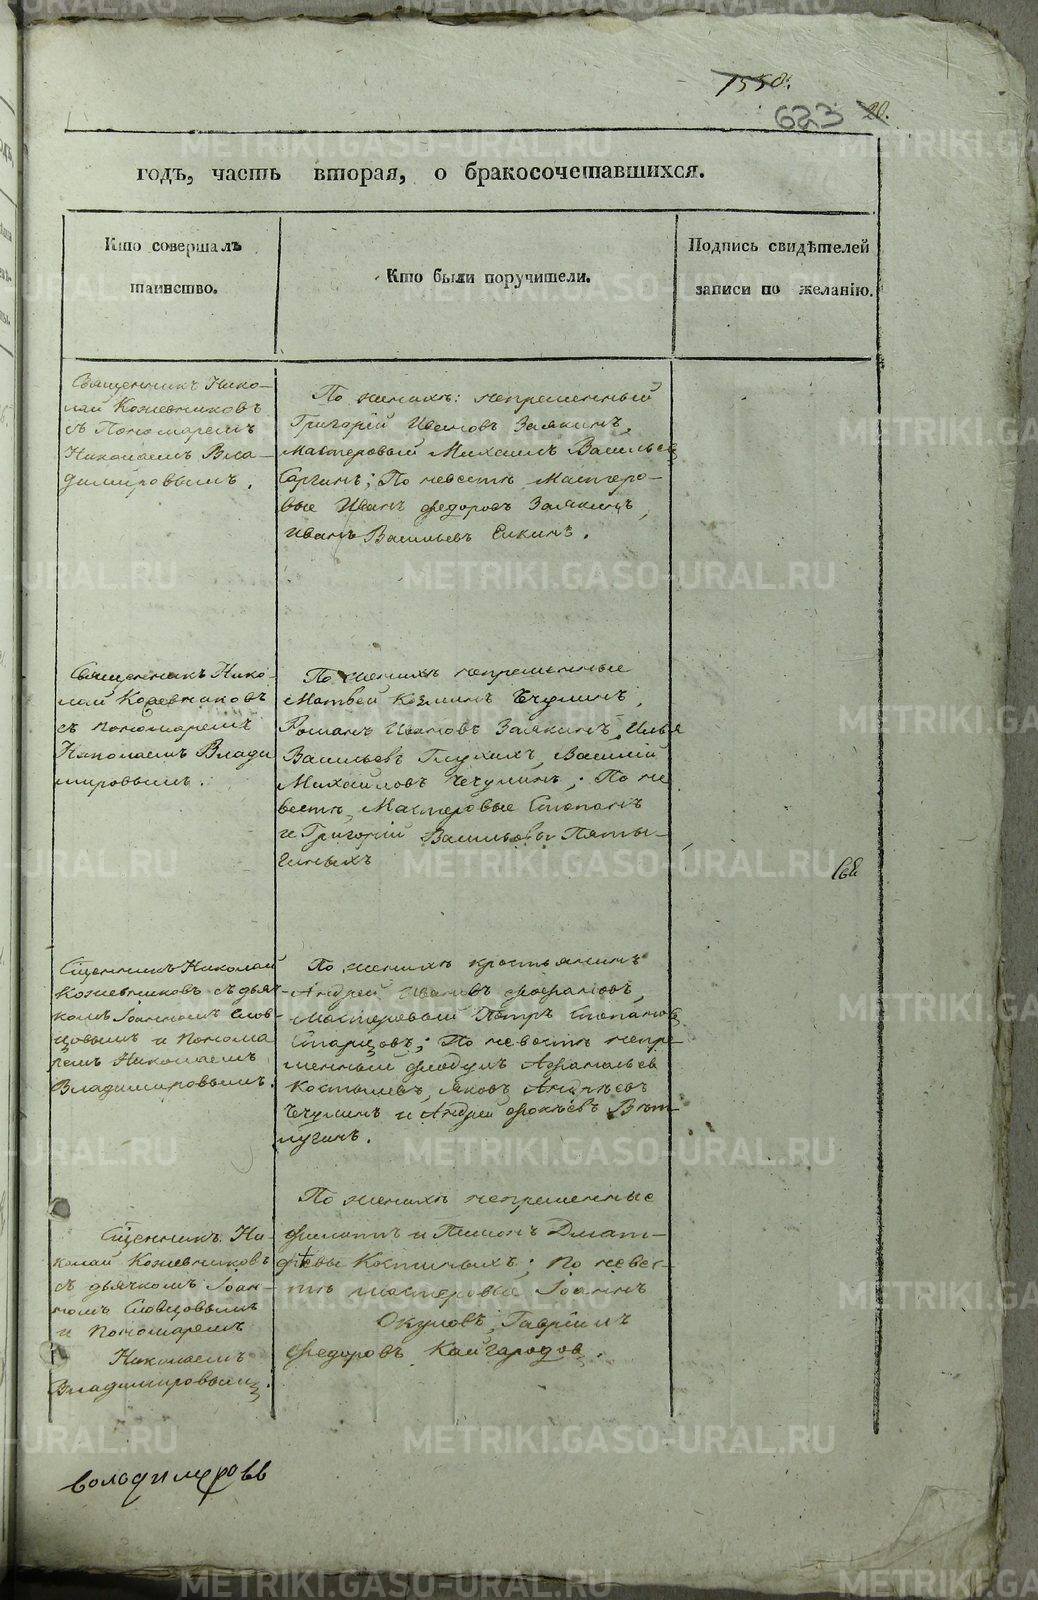 1550.
623 20.
годъ, часть вторая, о бракосочетавшихся.
Кто совершалъ
таинство.
Кто были поручители.
Подпись свидѣтелей
записи по желанію.
Священникъ Нико-
лай Кожевниковъ
съ Пономаремъ
Николаемъ Вла-
димировымъ.
По женихѣ: непременный
Григорій Ивановъ Заякинъ,
мастеровый Михаилъ Васильевъ
Сергинъ; По невестѣ Мастеро-
вые Иванъ Федоровъ Заякинъ,
Иванъ Васильевъ Елкинъ.
Священникъ Нико-
лай Кожевниковъ
съ пономаремъ
Николаемъ Влади
мировымъ.
По женихѣ непременные
Матвей Козминъ Чечулинъ,
Романъ Ивановъ Заякинъ, Илья
Васильевъ Глухихъ, Василій
Михайловъ Чечулинъ; По не
вестѣ, Мастеровые Степанъ
и Григорій Васильевы Пяты-
гиныхъ
Сщенникъ Николай
Кожевниковъ съ дья-
комъ Іоанномъ Слов-
цовымъ и Понома
ремъ Николаемъ
Владимировымъ.
По женихѣ крестьянинъ
Андрей Ивановъ
Мастеровый Петръ Степановъ
Старцовъ; По невестѣ непре-
менный
Яковъ Андреевъ
Чечулинъ и Андрей Фокѣевъ Вѣт-
лугинъ.
Сщенникъ Ни-
колай Кожевниковъ
съ дьячкомъ Іоан-
номъ Словцовымъ
и Пономаремъ
Николаемъ
Владимировымъ.
По женихѣ непременные
Филатъ и Пименъ
Костиныхъ; по невес-
тѣ мастеровые Іоаннъ
Окуловъ, Гавріилъ
Федоровъ Кайгородовъ.
володимеровъ
METRIKI.GASO-URAL.RU